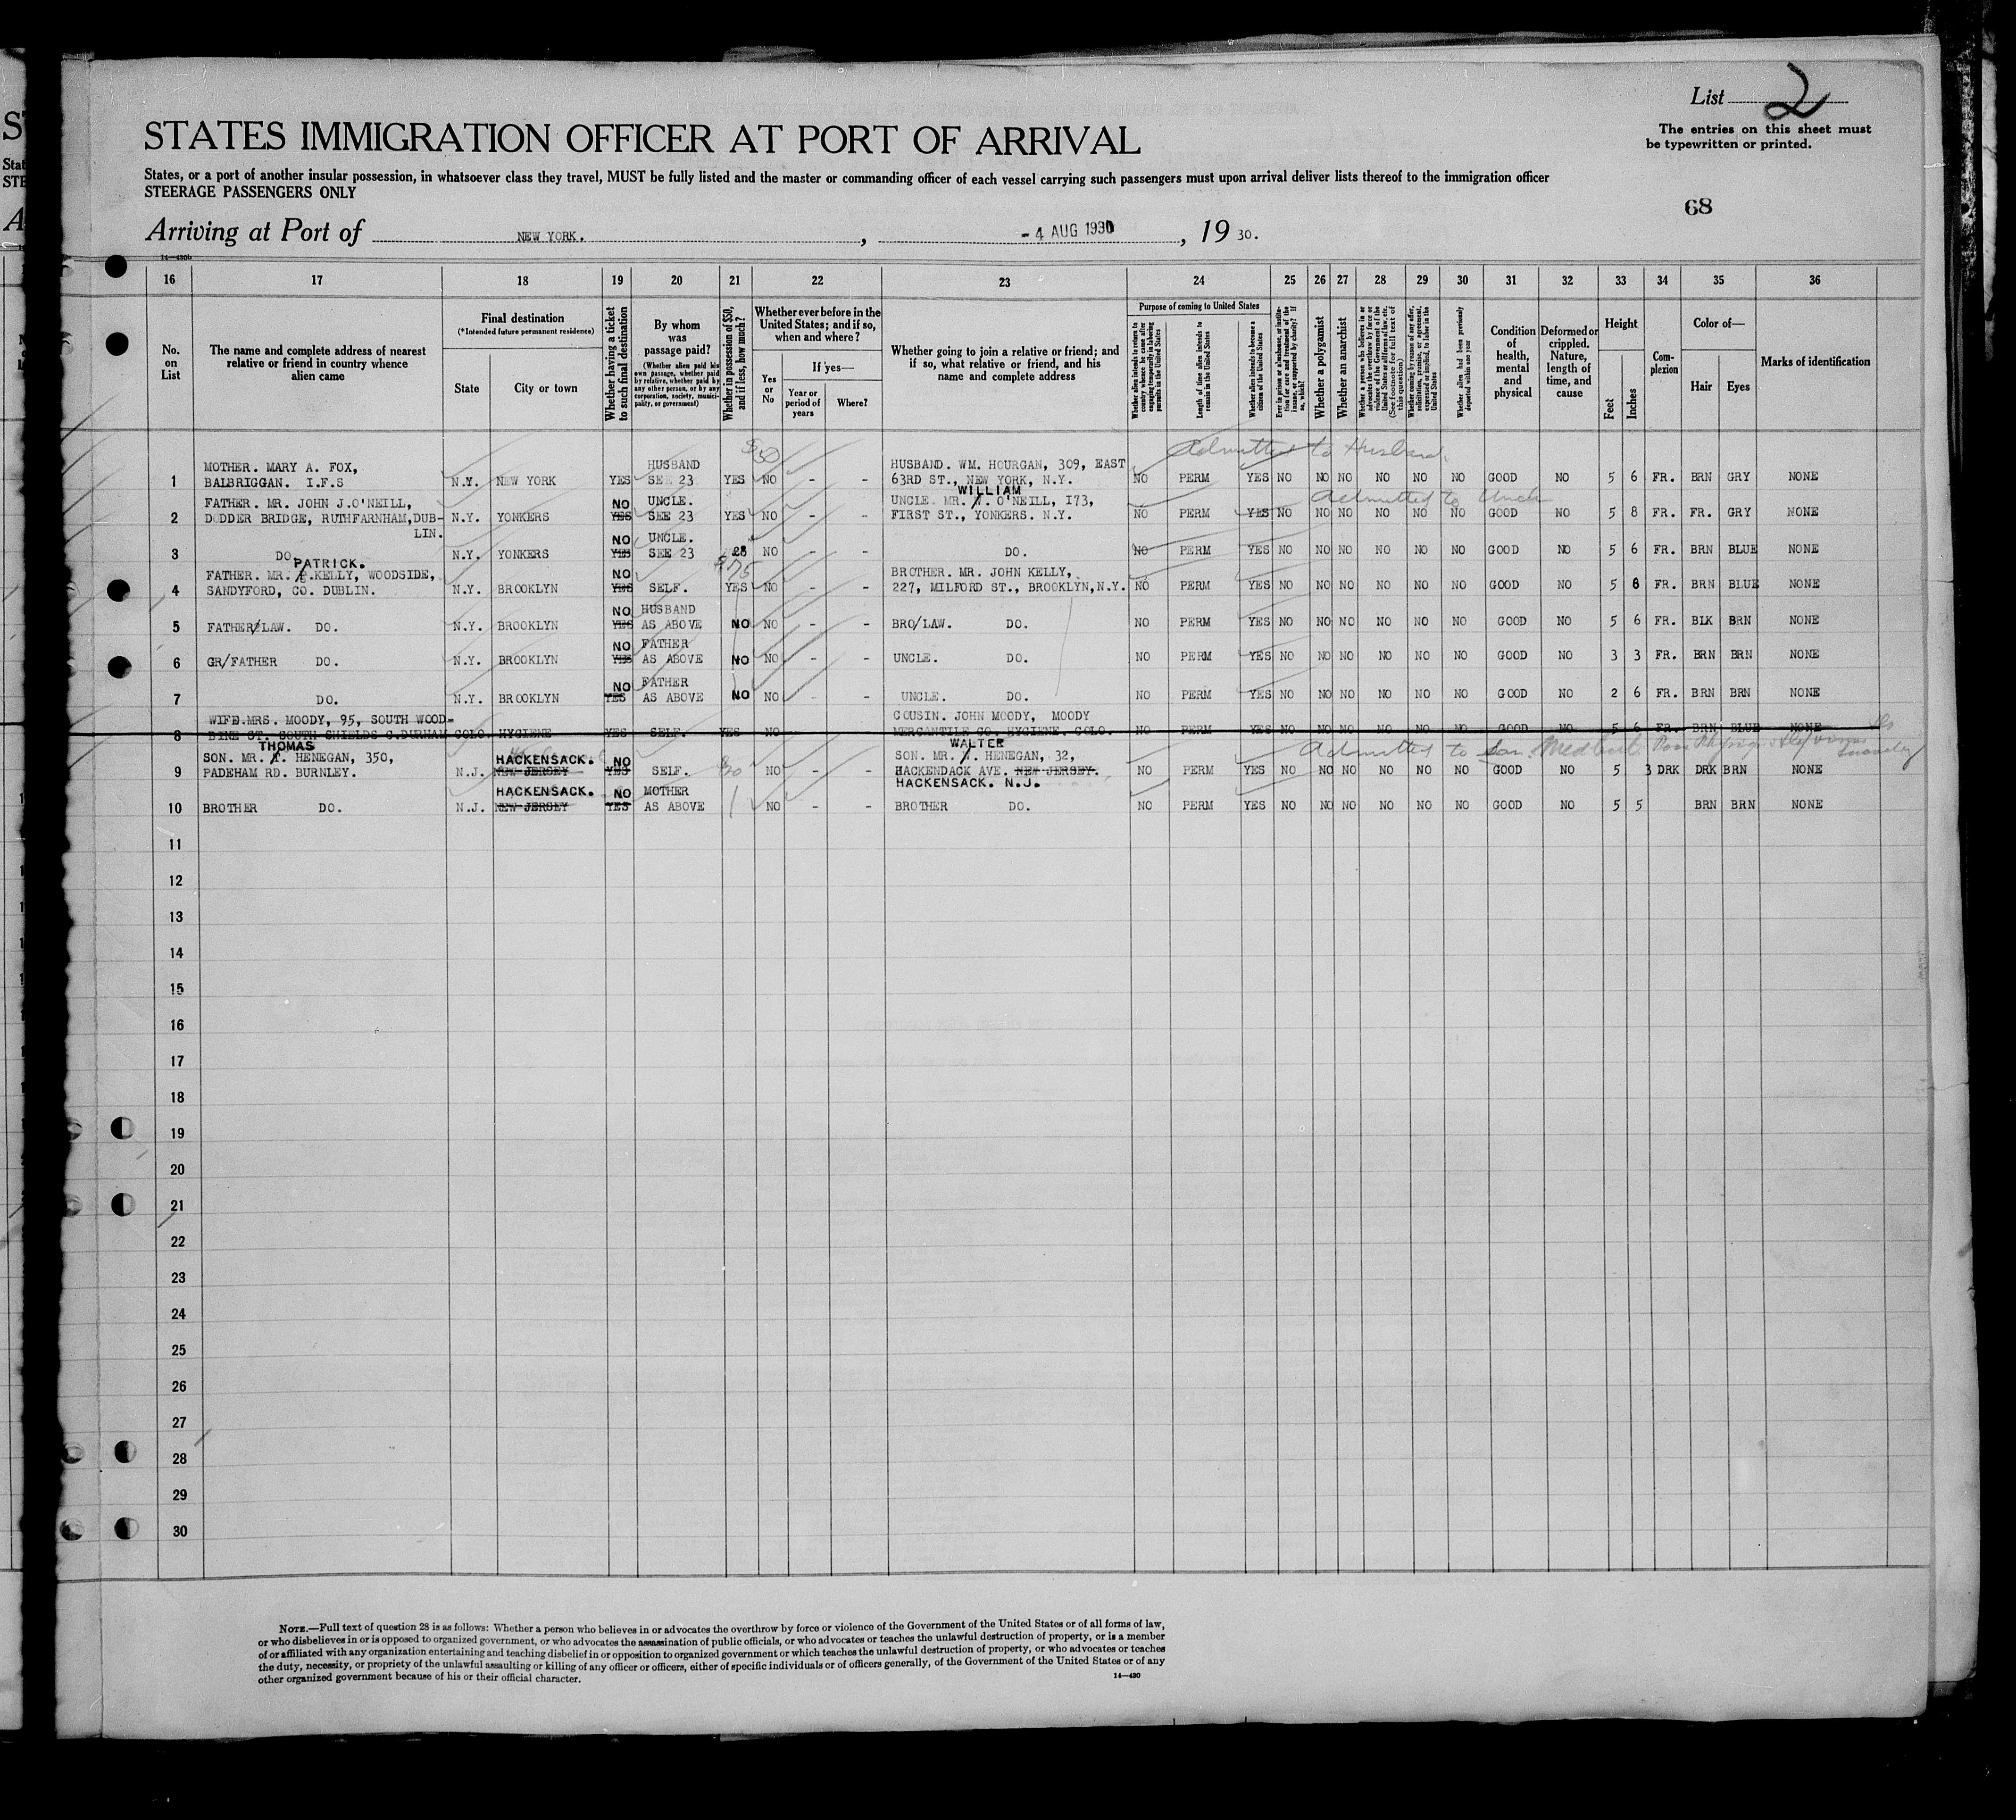 List 2
The entries on this sheet must
be typewritten or printed.
STATES IMMIGRATION OFFICER AT PORT OF ARRIVAL
States, or a port of another insular possession, in whatsoever class they travel, MUST be fully listed and the master or commanding officer of each vessel carrying such passengers must upon arrival deliver lists thereof to the immigration officer
STEERAGE PASSENGERS ONLY
68
Arriving at Port of NEW YORK. , - 4 AUG 1930 , 19 30.
14—430b
16 17 18 19 20 21 22 23 24 25 26 27 28 29 30 31 32 33 34 35 36
No. on List
The name and complete address of nearest relative or friend in country whence alien came
Final destination
(*Intended future permanent residence)
State
City or town
Whether having a ticket to such final destination
By whom was passage paid?
(Whether alien paid his own passage, whether paid by relative, whether paid by any other person, or by any corporation, society, municipality, or government)
Whether in possession of $50, and if less, how much?
Whether ever before in the United States; and if so, when and where?
Yes or No
If yes—
Year or period of years
Where?
Whether going to join a relative or friend; and if so, what relative or friend, and his name and complete address
Purpose of coming to United States
Whether alien intends to return to country whence he came after engaging temporarily in laboring pursuits in the United States
Length of time alien intends to remain in the United States
Whether alien intends to become a citizen of the United States
Ever in prison or almshouse, or institution for care and treatment of the insane, or supported by charity? If so, which?
Whether a polygamist
Whether an anarchist
Whether a person who believes in or advocates the overthrow by force or violence of the Government of the United States or all forms of law, etc. (See footnote for full text of this question)
Whether coming by reason of any offer, solicitation, promise, or agreement, expressed or implied, to labor in the United States
Whether alien had been previously deported within one year
Condition of health, mental and physical
Deformed or crippled. Nature, length of time, and cause
Height
Feet
Inches
Complexion
Color of—
Hair
Eyes
Marks of identification
$50 Admitted to Husband
MOTHER. MARY A. FOX, HUSBAND HUSBAND. WM. HOURGAN, 309, EAST
1 BALBRIGGAN. I.F.S N.Y. NEW YORK YES SEE 23 YES NO - - 63RD ST., NEW YORK, N.Y. NO PERM YES NO NO NO NO NO NO GOOD NO 5 6 FR. BRN GRY NONE
WILLIAM Admitted to Uncle
FATHER. MR. JOHN J.O'NEILL, NO UNCLE. UNCLE. MR. O'NEILL, I73,
2 DODDER BRIDGE, RUTHFARNHAM, DUB- N.Y. YONKERS YES SEE 23 YES NO - - FIRST ST., YONKERS. N.Y. NO PERM YES NO NO NO NO NO NO GOOD NO 5 8 FR. FR. GRY NONE
LIN. NO UNCLE.
3 DO. N.Y. YONKERS YES SEE 23 NO - - DO. NO PERM YES NO NO NO NO NO NO GOOD NO 5 6 FR. BRN BLUE NONE
PATRICK. $75
FATHER. MR. P.KELLY, WOODSIDE, NO BROTHER. MR. JOHN KELLY,
4 SANDYFORD, CO. DUBLIN. N.Y. BROOKLYN YES SELF. YES NO - - 227, MILFORD ST., BROOKLYN,N.Y. NO PERM YES NO NO NO NO NO NO GOOD NO 5 8 FR. BRN BLUE NONE
NO HUSBAND
5 FATHER/LAW. DO. N.Y. BROOKLYN YES AS ABOVE NO NO - - BRO/LAW. DO. NO PERM YES NO NO NO NO NO NO GOOD NO 5 6 FR. BLK BRN NONE
NO FATHER
6 GR/FATHER DO. N.Y. BROOKLYN YES AS ABOVE NO NO - - UNCLE. DO. NO PERM YES NO NO NO NO NO NO GOOD NO 3 3 FR. BRN BRN NONE
NO FATHER
7 DO. N.Y. BROOKLYN YES AS ABOVE NO NO - - UNCLE. DO. NO PERM YES NO NO NO NO NO NO GOOD NO 2 6 FR. BRN BRN NONE
WIFE.MRS. MOODY, 95, SOUTH WOOD- COUSIN. JOHN MOODY, MOODY
8 BINE ST. SOUTH SHIELDS C.DURHAM COLO. HYGIENE YES SELF. YES NO MERCANTILE CO. HYGIENE. COLO. NO PERM YES NO NO NO NO NO NO GOOD NO 5 6 FR. BRN BLUE NONE
THOMAS WALTER Admitted to Son.
SON. MR. HENEGAN, 350, HACKENSACK. NO SON. MR. HENEGAN, 32,
9 PADEHAM RD. BURNLEY. N.J. NEW JERSEY YES SELF. NO - - HACKENDACK AVE. NEW JERSEY. NO PERM YES NO NO NO NO NO NO GOOD NO 5 3 DRK DRK BRN NONE
HACKENSACK. NO MOTHER HACKENSACK. N.J.
10 BROTHER DO. N.J. NEW JERSEY YES AS ABOVE NO - - BROTHER DO. NO PERM YES NO NO NO NO NO NO GOOD NO 5 5 BRN BRN NONE
11
12
13
14
15
16
17
18
19
20
21
22
23
24
25
26
27
28
29
30
NOTE.—Full text of question 28 is as follows: Whether a person who believes in or advocates the overthrow by force or violence of the Government of the United States or of all forms of law,
or who disbelieves in or is opposed to organized government, or who advocates the assassination of public officials, or who advocates or teaches the unlawful destruction of property, or is a member
of or affiliated with any organization entertaining and teaching disbelief in or opposition to organized government or which teaches the unlawful destruction of property, or who advocates or teaches
the duty, necessity, or propriety of the unlawful assaulting or killing of any officer or officers, either of specific individuals or of officers generally, of the Government of the United States or of any
other organized government because of his or their official character. 14—430